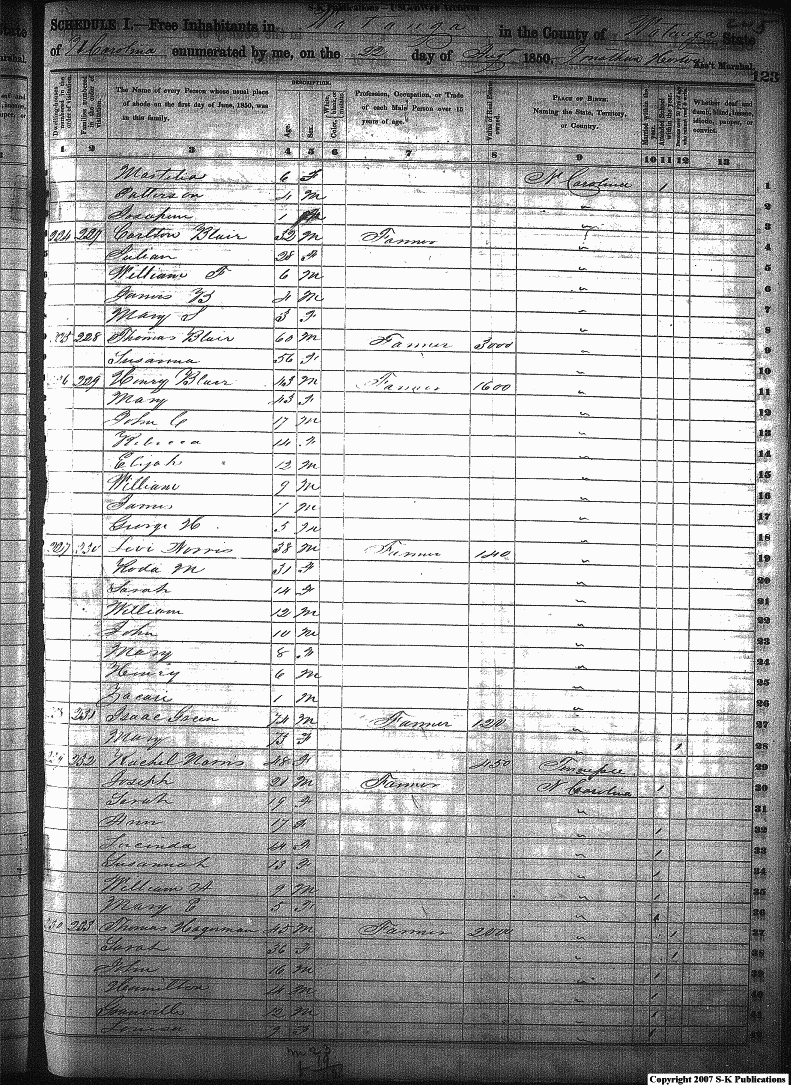 S-K Publications - USGenWeb Archives
SCHEDULE I.—Free Inhabitants in Watauga in the County of Watauga State
of N Carolina enumerated by me, on the 22 day of Augt 1850. Jonathan Ass't Marshal.
123
DESCRIPTION.
Dwelling-houses numbered in the order of visitation. Families numbered in the order of visitation. The Name of every Person whose usual place of abode on the first day of June, 1850, was in this family. Age. Sex. Profession, Occupation, or Trade of each Male Person over 15 years of age. Value of Real Estate owned. PLACE OF BIRTH. Naming the State, Territory, or Country. Married within the year. Whether deaf and dumb, blind, insane, idiotic, pauper, or convict.
1 2 3 4 5 6 7 8 9 10 11 12 13
6 F N Carolina 1 1
Patterson 4 M " 2
1 " 3
224 227 Carlton Blair 32 M Farmer " 4
Julian 28 F " 5
William F 6 M " 6
James 4 M " 7
Mary S 3 F " 8
228 Thomas Blair 60 M Farmer 3000 " 9
Susanna 56 F " 10
229 Henry Blair 43 M Farmer 1600 " 11
Mary 43 F " 12
John C 17 M " 13
Rebecca 14 F " 14
Elijah 12 M " 15
William 9 M " 16
James 7 M " 17
George H 5 M " 18
227 230 Levi Norris 38 M Farmer 140 " 19
Hoda M 31 F " 20
Sarah 14 F " 21
William 12 M " 22
John 10 M " 23
Mary 8 F " 24
Henry 6 M " 25
1 M " 26
231 Isaac Green 74 M Farmer 120 " 27
Mary 73 F " 1 28
232 Rachel Norris 48 F 450 Tennessee 29
Joseph 21 M Farmer N Carolina 1 30
Sarah 19 F " 31
Ann 17 F " 1 32
Lucinda 14 F " 1 33
Susannah 13 F " 1 34
William H 9 M " 1 35
Mary E 5 F " 1 36
233 Thomas Hagerman 45 M Farmer 2000 " 1 37
Sarah 36 F " 1 38
John 16 M " 1 39
Hamilton 14 M " 1 40
Granville 12 M " 1 41
Louisa 9 F " 1 42
Copyright 2007 S-K Publications